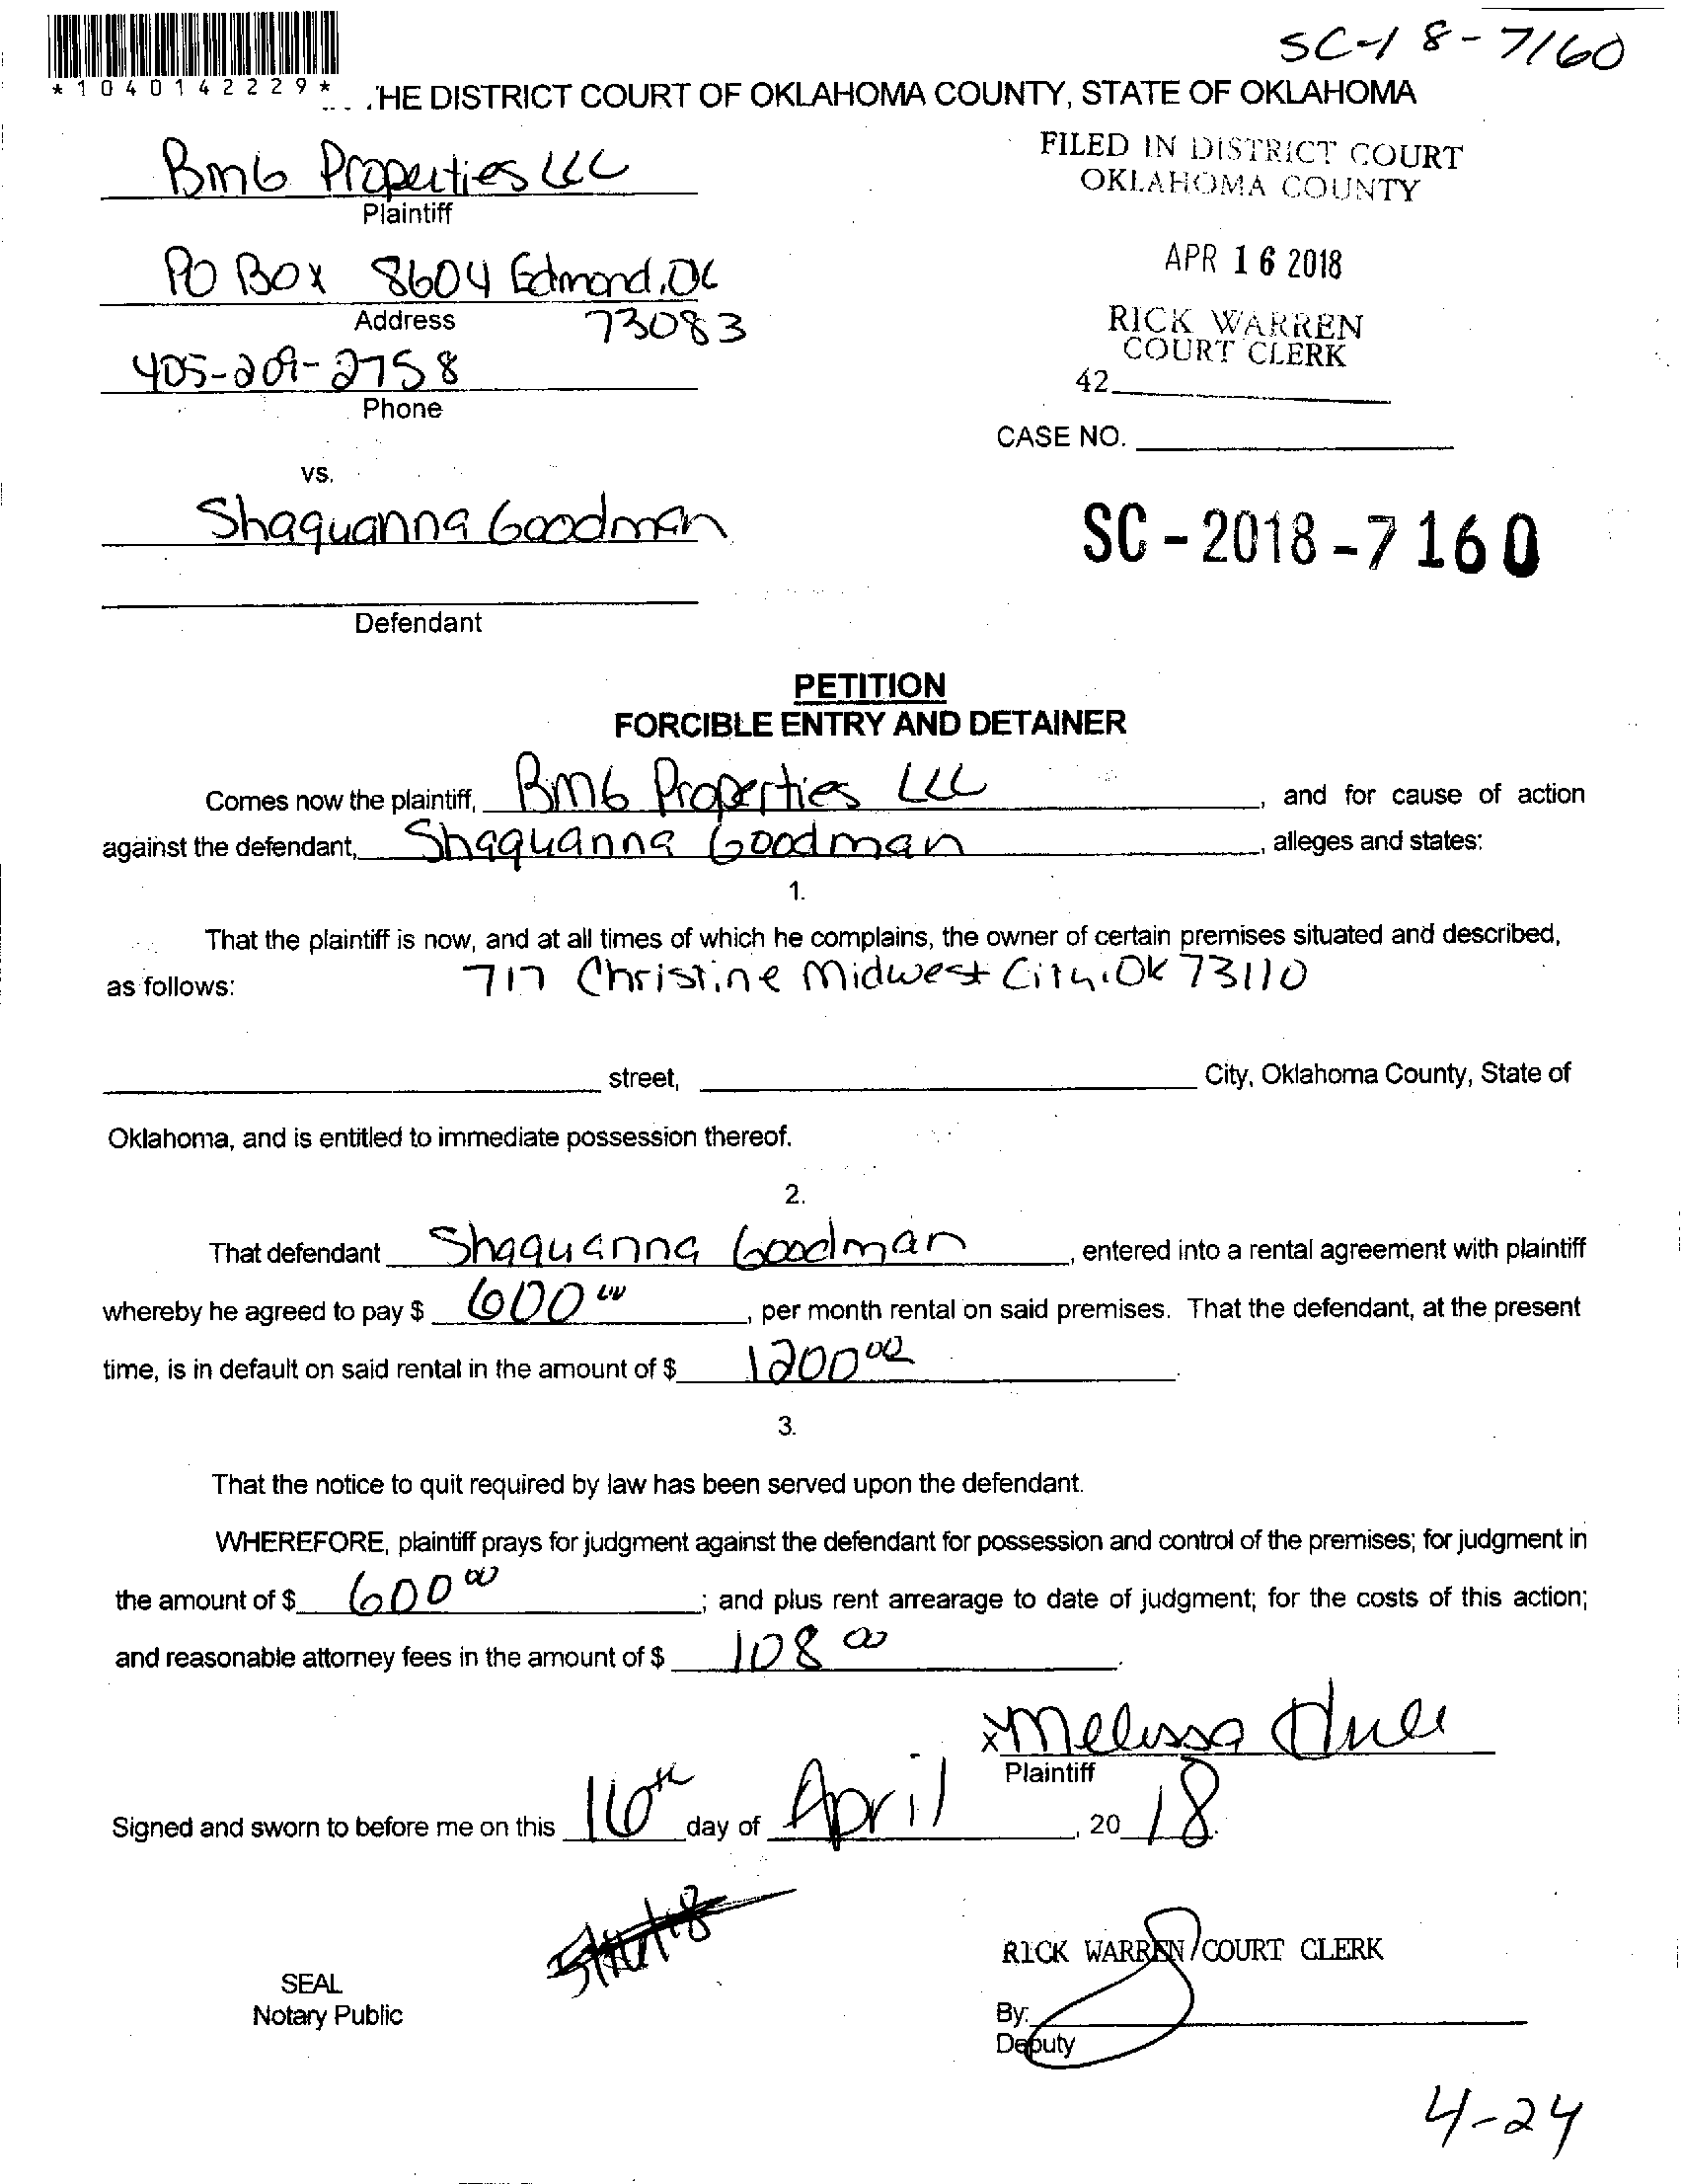 SC-18-7160
*1040142229*
THE DISTRICT COURT OF OKLAHOMA COUNTY, STATE OF OKLAHOMA
FILED IN DISTRICT COURT
OKLAHOMA COUNTY
BMG Properties LLC
Plaintiff
APR 16 2018
PO BOX 8604 Edmond, OK
Address
73083
RICK WARREN
COURT CLERK
405-209-2758
42
Phone
CASE NO.
vs.
Shaquanna Goodman
SC-2018-7160
Defendant
PETITION
FORCIBLE ENTRY AND DETAINER
Comes now the plaintiff, BMG Properties LLC, and for cause of action
against the defendant, Shaquanna Goodman, alleges and states:
1.
That the plaintiff is now, and at all times of which he complains, the owner of certain premises situated and described,
as follows: 717 Christine Midwest City, OK 73110
street, City, Oklahoma County, State of
Oklahoma, and is entitled to immediate possession thereof.
2.
That defendant Shaquanna Goodman, entered into a rental agreement with plaintiff
whereby he agreed to pay $ 600 00, per month rental on said premises. That the defendant, at the present
time, is in default on said rental in the amount of $ 1200 00.
3.
That the notice to quit required by law has been served upon the defendant.
WHEREFORE, plaintiff prays for judgment against the defendant for possession and control of the premises; for judgment in
the amount of $ 600 00; and plus rent arrearage to date of judgment; for the costs of this action;
and reasonable attorney fees in the amount of $ 108 00.
x Melissa Hull
Plaintiff
Signed and sworn to before me on this 16th day of April, 2018.
RICK WARREN/COURT CLERK
SEAL
Notary Public
By:
Deputy
4-24